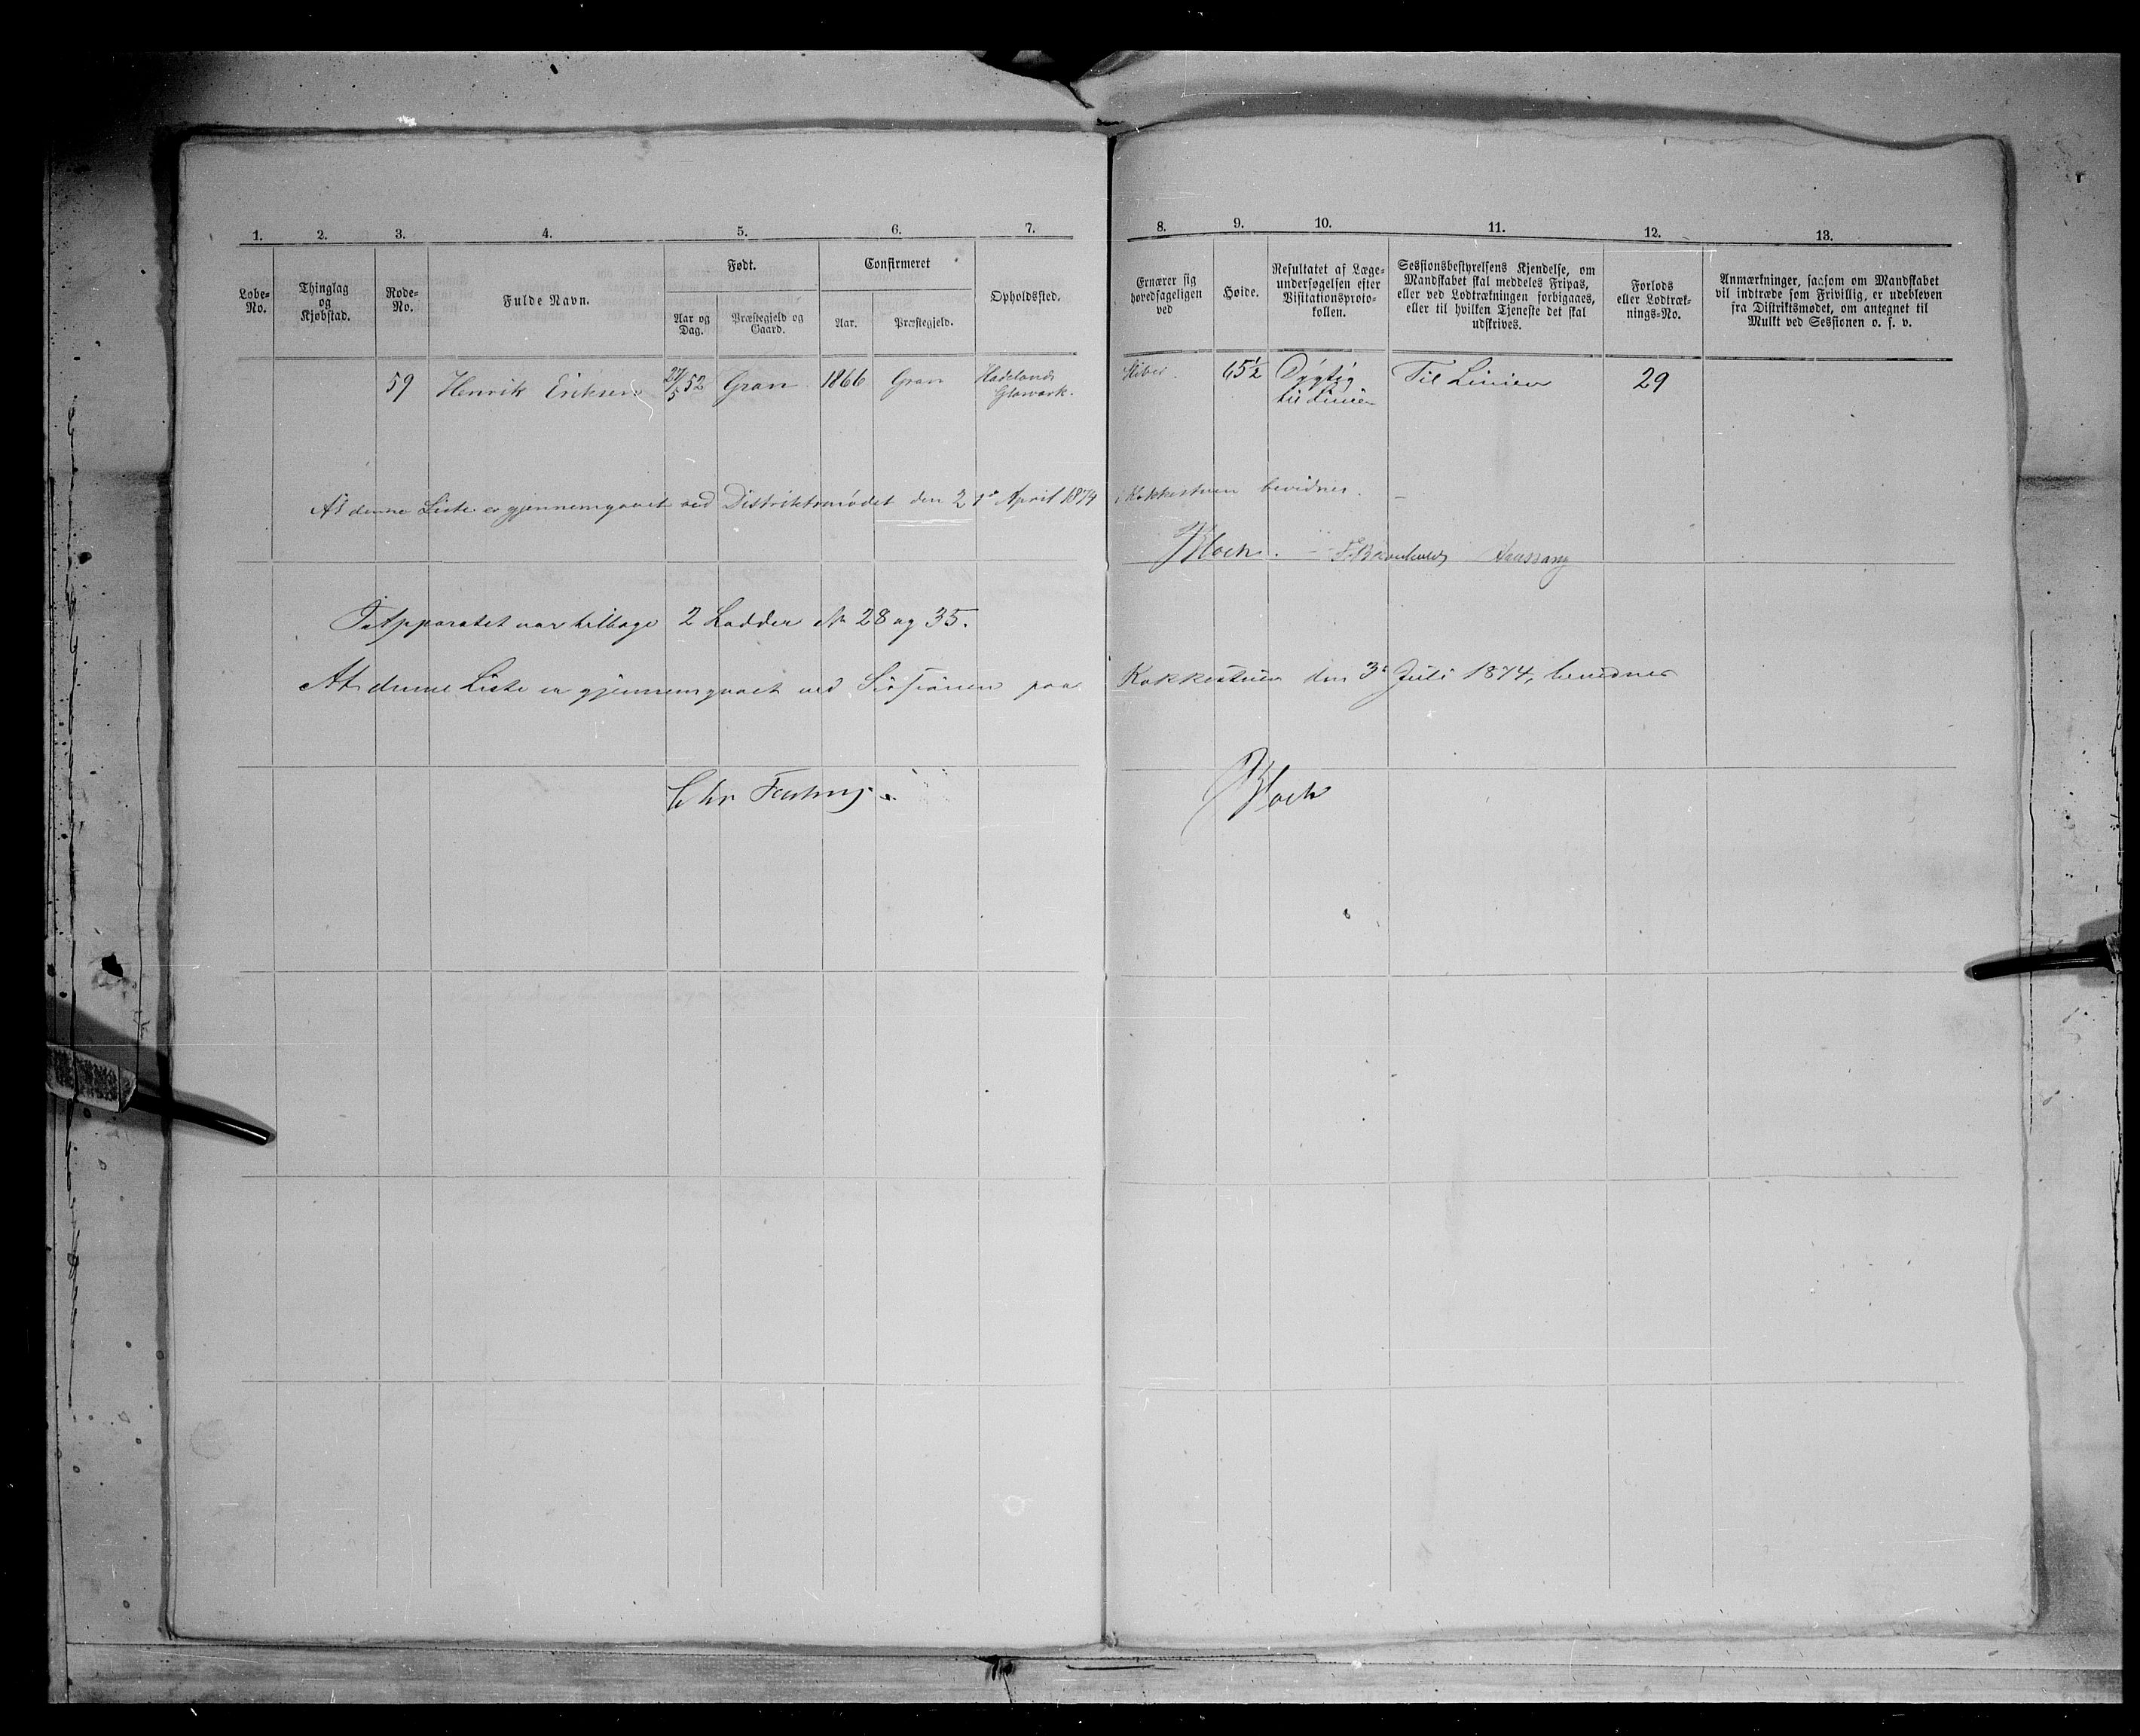 1. 2. 3. 4. 5. 6. 7. 8. 9. 10. 11. 12. 13.
Løbe-No.
Thinglag og Kjøbstad.
Rode-No.
Fulde Navn.
Født.
Aar og Dag.
Præstegjeld og Gaard.
Confirmeret
Aar.
Præstegjeld.
Opholdssted.
Ernærer sig hovedsageligen ved
Høide.
Resultatet af Læge-undersøgelsen efter Visitationsproto-kollen.
Sessionsbestyrelsens Kjendelse, om Mandskabet skal meddeles Fripas, eller ved Lodtrækningen forbigaaes, eller til hvilken Tjeneste det skal udskrives.
Forlods eller Lodtræk-nings-No.
Anmærkninger, saasom om Mandskabet vil indtræde som Frivillig, er udebleven fra Distriktsmødet, om antegnet til Mulkt ved Sessionen o. s. v.
59 Henrik Eriksen 27/5 52 Gran 1866 Gran Hadelands Glasværk. Sliber. 65½ Dygtig til Linien Til Linien 29
At denne Liste er gjennemgaaet ved Distriktsmødet den 21e April 1874 i Kokkestuen bevidnes.
Bloch.
I Apparatet var tilbage 2 Lodder No 28 og 35.
At denne Liste er gjennemgaaet ved Sessionen paa Kokkestuen den 3e Juli 1874, bevidnes
Chr Fasting. Bloch